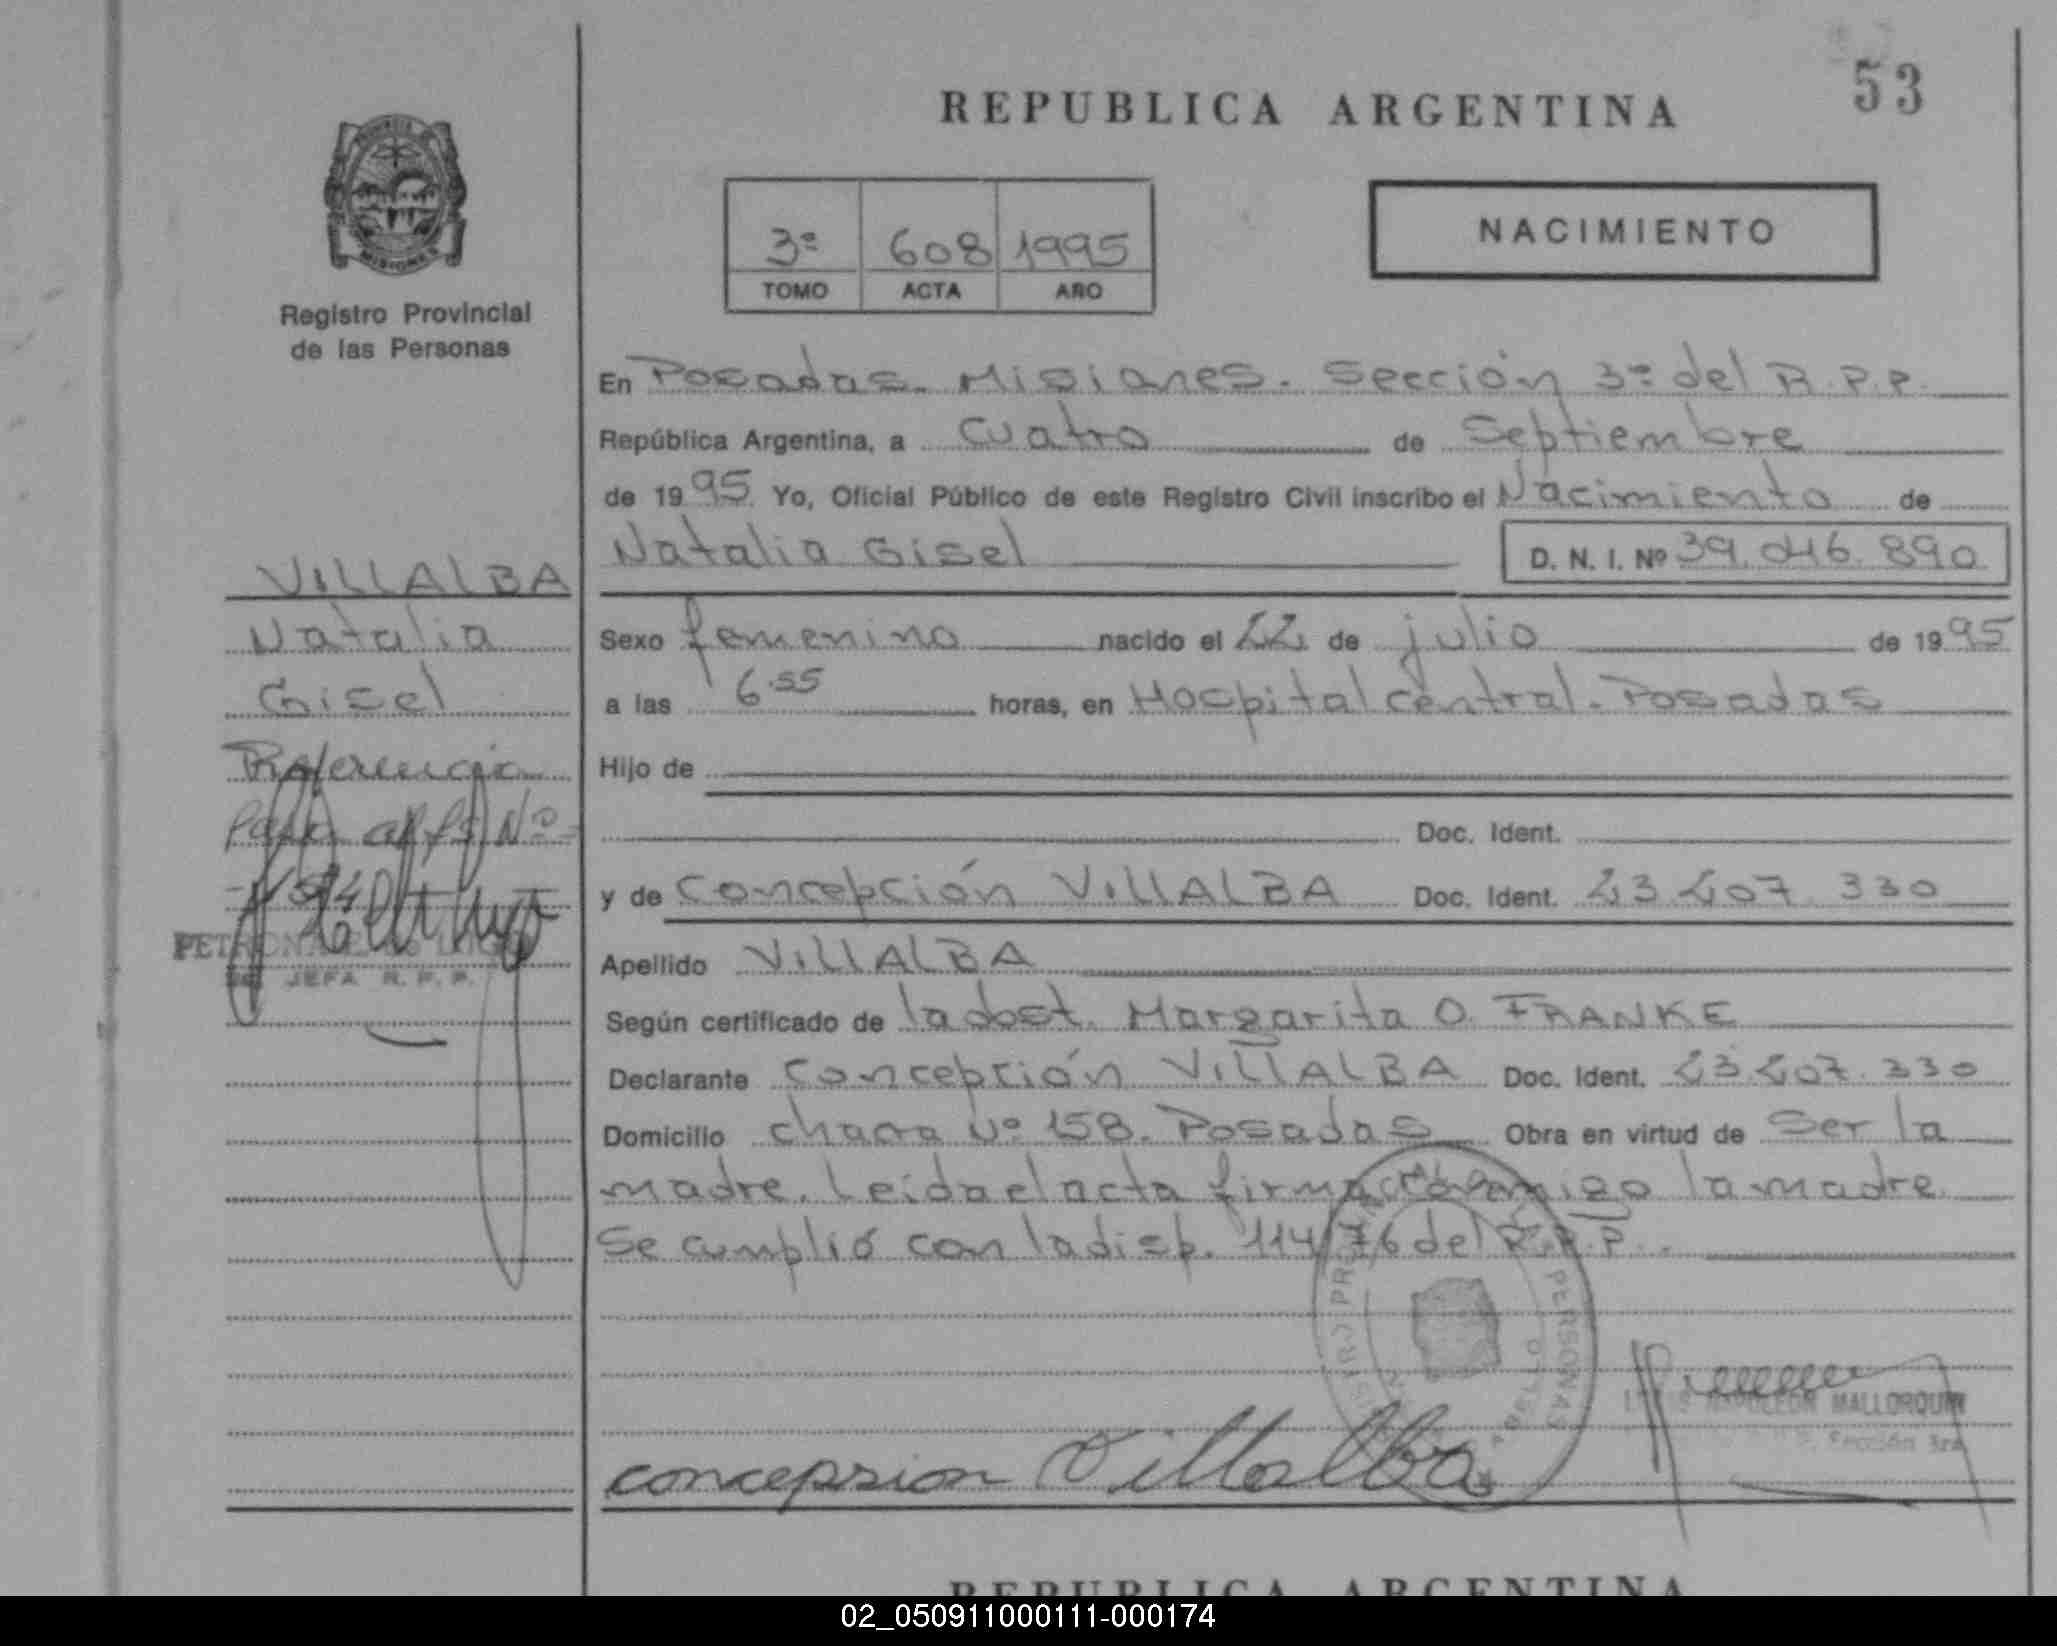 53
REPUBLICA ARGENTINA
NACIMIENTO
3º 608 1995
TOMO ACTA AÑO
Registro Provincial
de las Personas
En Posadas. Misiones. Sección 3º del R.P.P.
República Argentina, a Cuatro de Septiembre
de 1995 Yo, Oficial Público de este Registro Civil inscribo el Nacimiento de
Natalia Gisel D. N. I. Nº 39.046.890
VILLALBA
Natalia
Gisel
Referencia
Sexo femenino nacido el 22 de julio de 1995
a las 6.55 horas, en Hospital Central. Posadas
Hijo de
Doc. Ident.
y de Concepción VILLALBA Doc. Ident. 23.207.330
JEFA R. P. P.
Apellido VILLALBA
Según certificado de la obst. Margarita O. FRANKE
Declarante Concepción VILLALBA Doc. Ident. 23.207.330
Domicilio chacra Nº 158. Posadas Obra en virtud de Ser la
madre. Leida el acta firma conmigo la madre.
Se cumplió con la disp. 114/76 del R.P.P.
PERSONAS
NAPOLEON MALLORQUIN
Sección 3ra
concepsion Villalba
REPUBLICA ARGENTINA
02_050911000111-000174